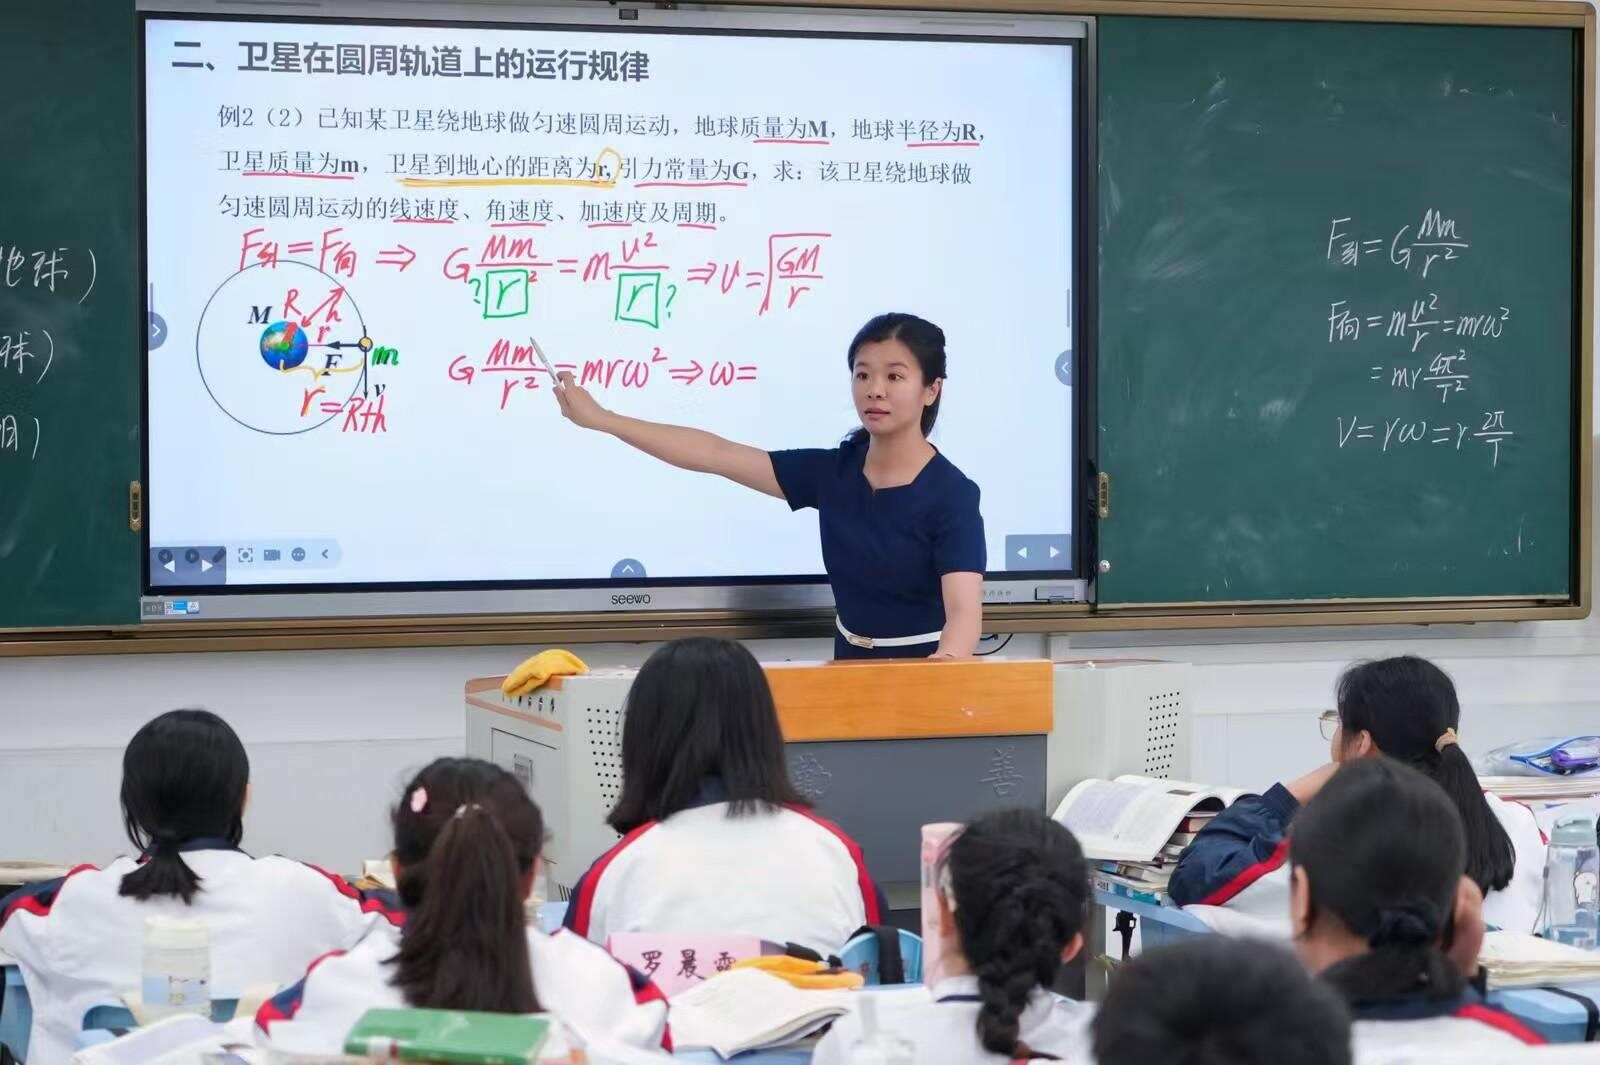 二、卫星在圆周轨道上的运行规律
例2（2）已知某卫星绕地球做匀速圆周运动，地球质量为M，地球半径为R，
卫星质量为m，卫星到地心的距离为r,引力常量为G，求：该卫星绕地球做
匀速圆周运动的线速度、角速度、加速度及周期。
F引=F向 ⇒ G Mm/r² = m v²/r ⇒ v=√(GM/r)
? ?
M R h
r
F m
v
r=R+h
G Mm/r² = mrω² ⇒ ω=
地球）
球）
月）
F引=G Mm/r²
F向=m v²/r=mrω²
=mr 4π²/T²
V=rω=r·2π/T
seewo
勤 善
罗晨霏